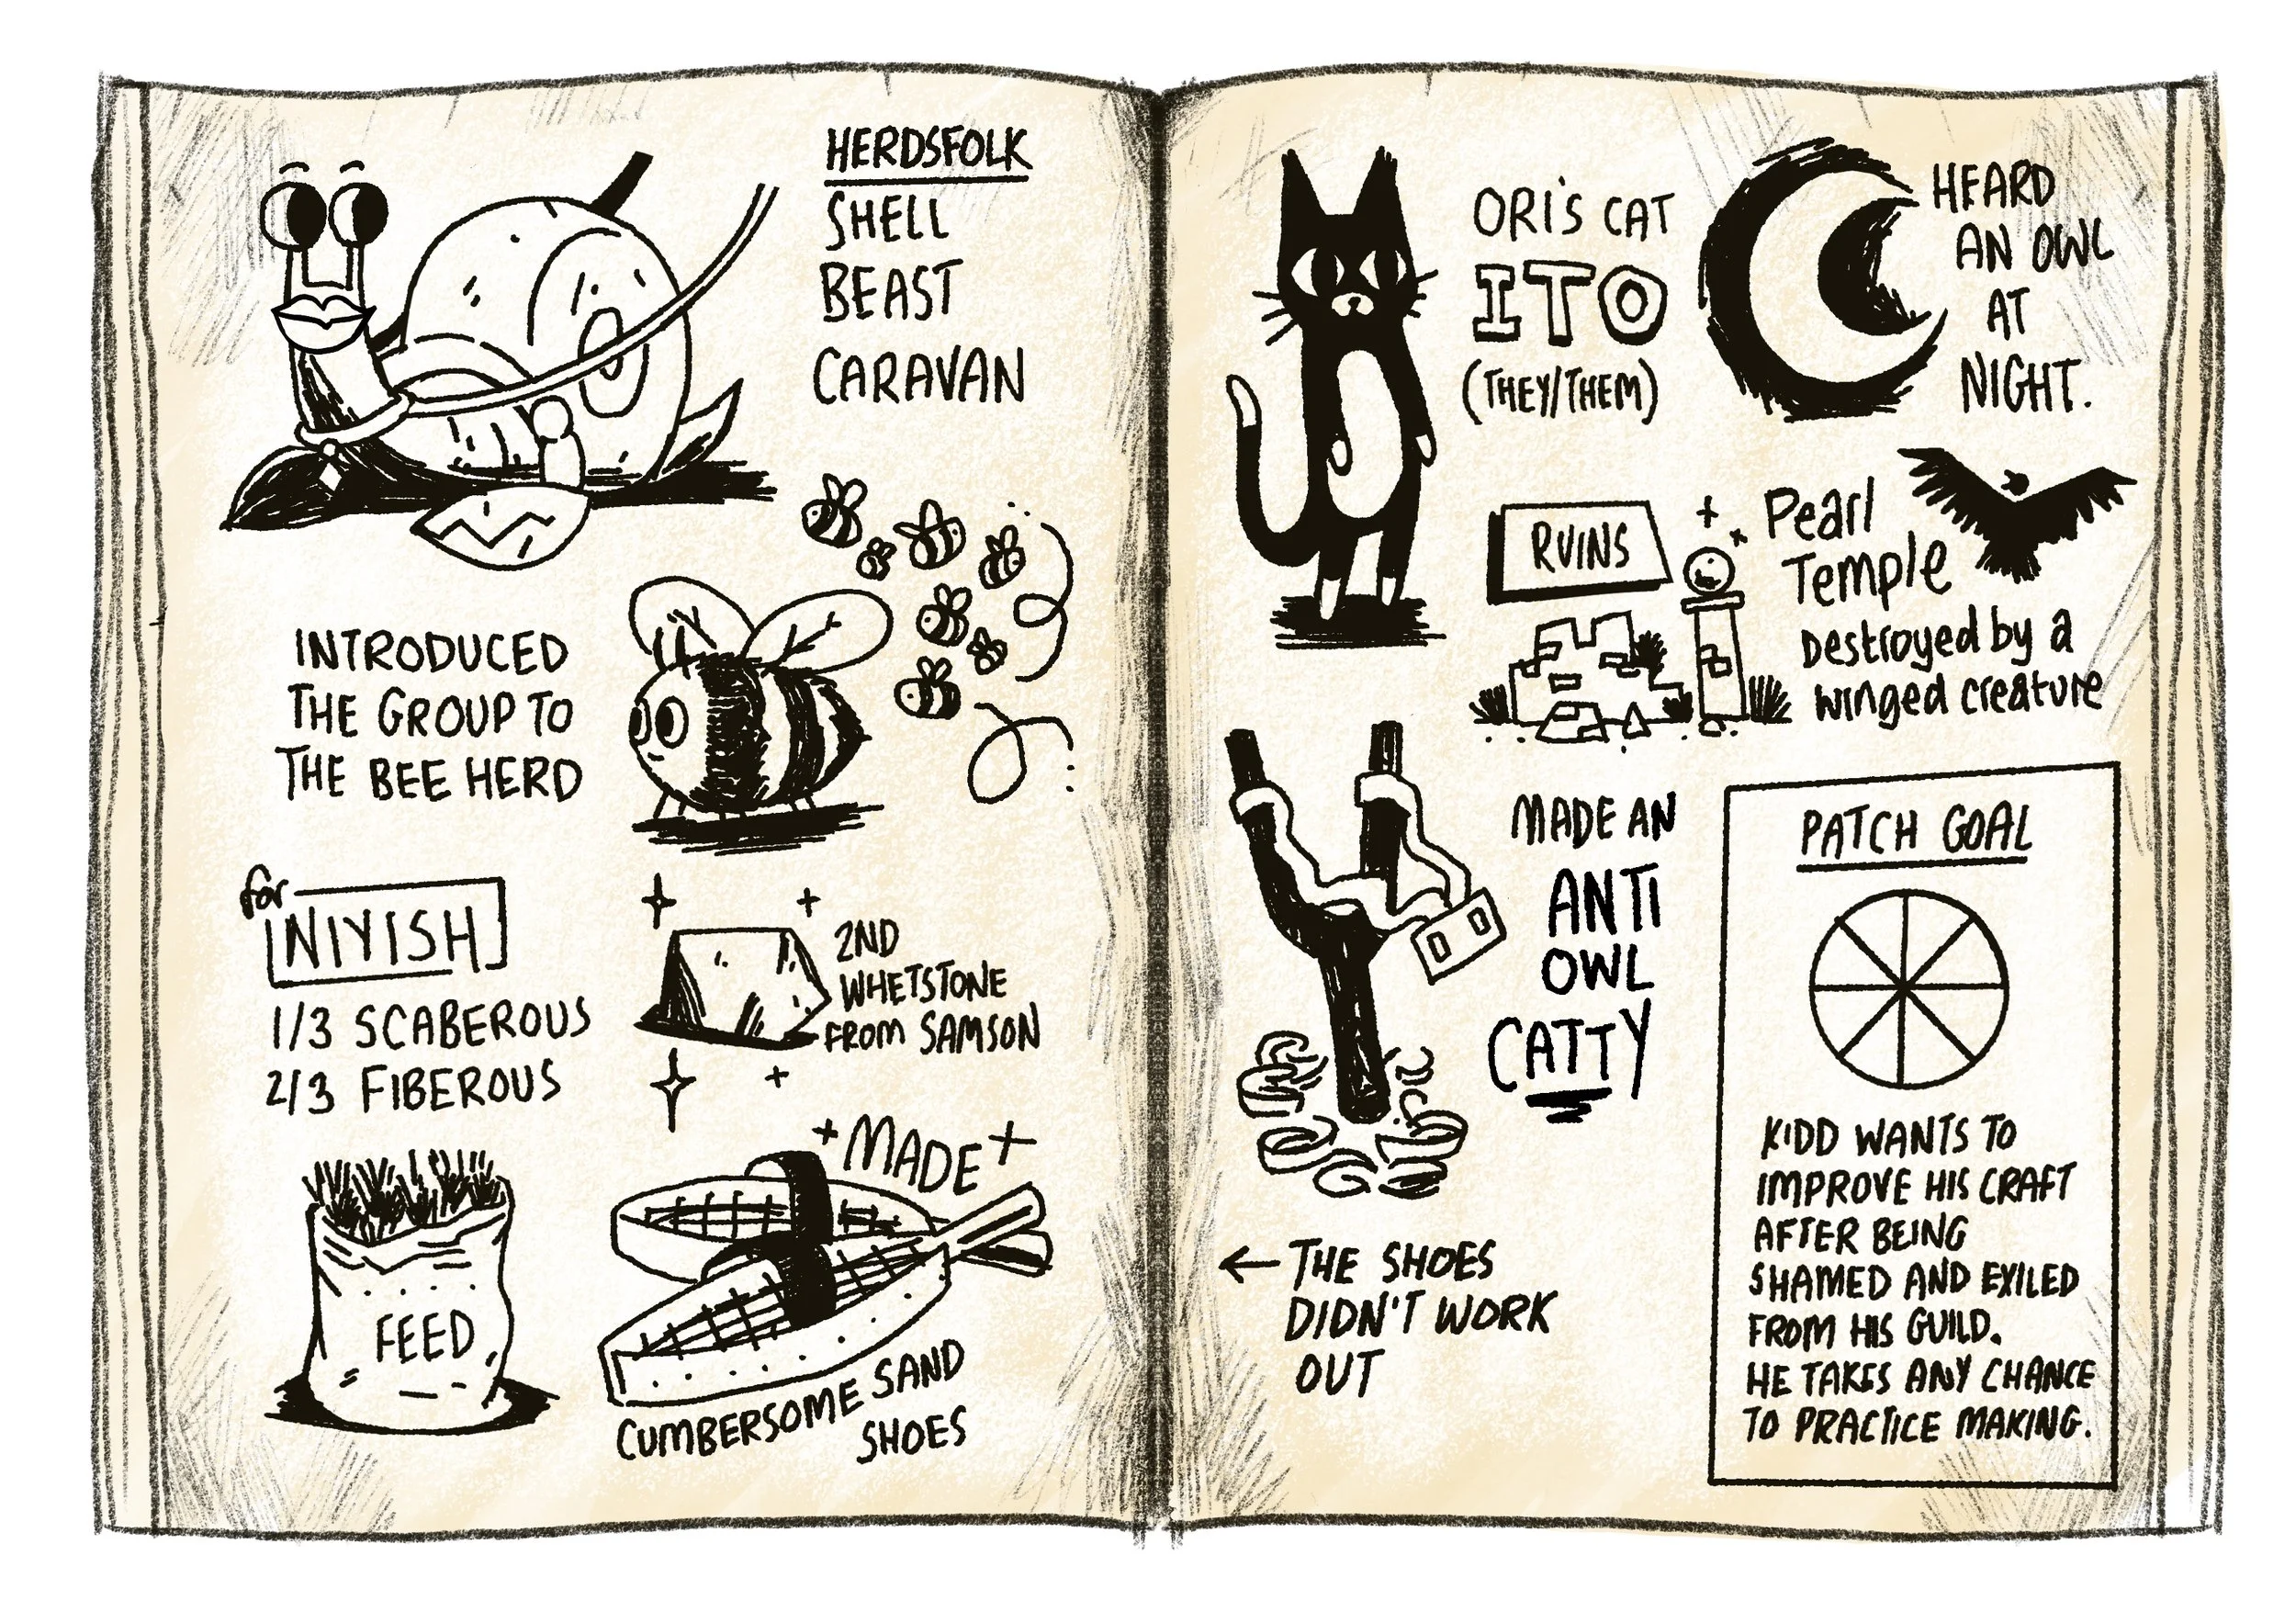 HERDSFOLK
SHELL
BEAST
CARAVAN
INTRODUCED
THE GROUP TO
THE BEE HERD
for
NIYISH
1/3 SCABEROUS
2/3 FIBEROUS
FEED
2ND
WHETSTONE
FROM SAMSON
MADE
CUMBERSOME SAND
SHOES
ORI'S CAT
ITO
(THEY/THEM)
HEARD
AN OWL
AT
NIGHT.
RUINS
Pearl
Temple
Destroyed by a
winged creature
MADE AN
ANTI
OWL
CATTY
← THE SHOES
DIDN'T WORK
OUT
PATCH GOAL
KIDD WANTS TO
IMPROVE HIS CRAFT
AFTER BEING
SHAMED AND EXILED
FROM HIS GUILD.
HE TAKES ANY CHANCE
TO PRACTICE MAKING.